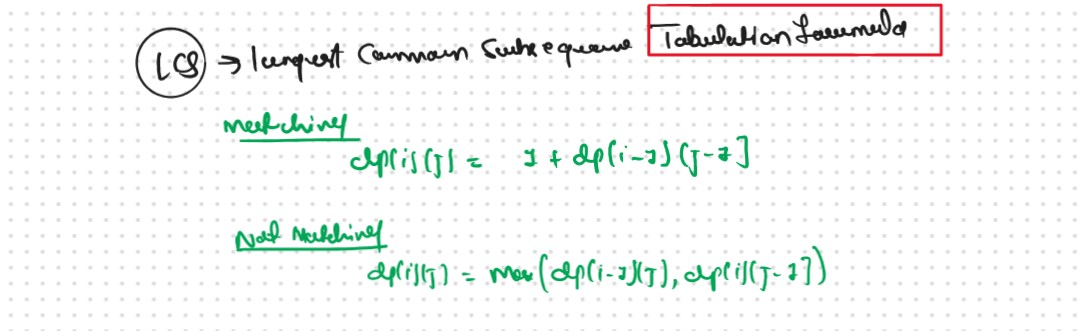 LCS → longest Common Subsequence Tabulation Formula
Matching
dp[i][J] = 1 + dp[i-1][J-1]
Not Matching
dp[i][J] = Max(dp[i-1][J], dp[i][J-1])